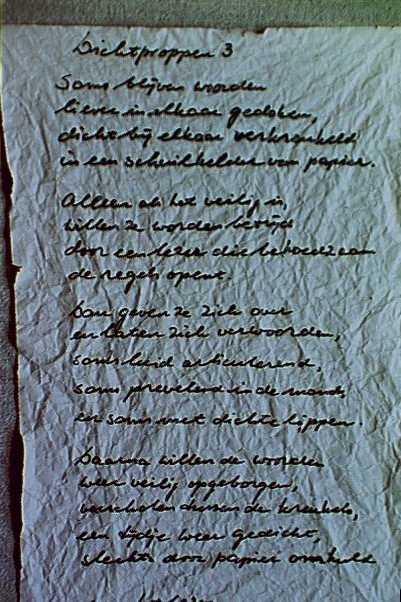 Dichtproppen 3
Soms blijven woorden
liever in elkaar gedoken,
dicht bij elkaar verkreukeld
in een schuilkelder van papier.
Alleen als het veilig is,
willen ze worden bevrijd
door een lezer die behoedzaam
de regels opent.
Dan geven ze zich over
en laten zich verwoorden,
soms luid articulerend,
soms prevelend in de mond,
en soms met dichte lippen.
Daarna willen de woorden
weer veilig opgeborgen,
verscholen tussen de kreukels,
een tijdje weer gedicht,
slechts door papier omhuld